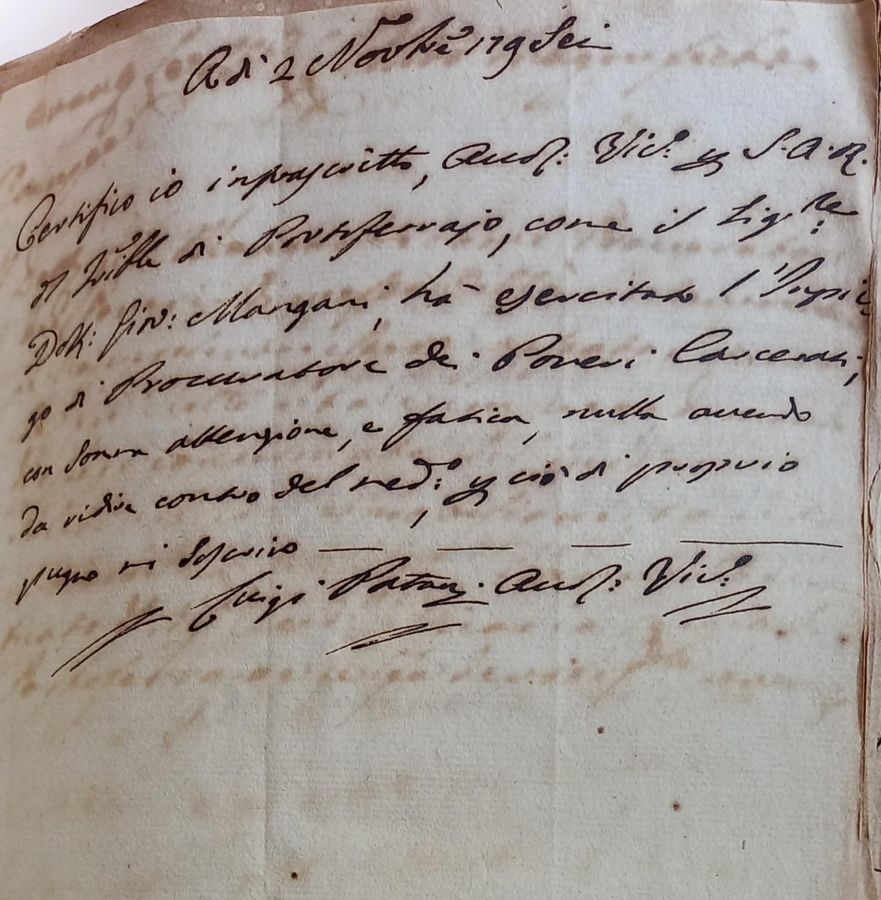 A di 2 Novbre 179Sei
Certifico io infrascritto, Aud.: Vic.o p S. A. R.
di Portoferrajo, come il Sig.re
Dott: Gio: Mangani, ha esercitato l'Impie
go di Procuratore dei Poveri Carcerati,
con somma attenzione, e fatica, nulla avendo
da ridire contro del med.o, p ciò di proprio
pugno mi soscrivo
Luigi Aud.: Vic.o